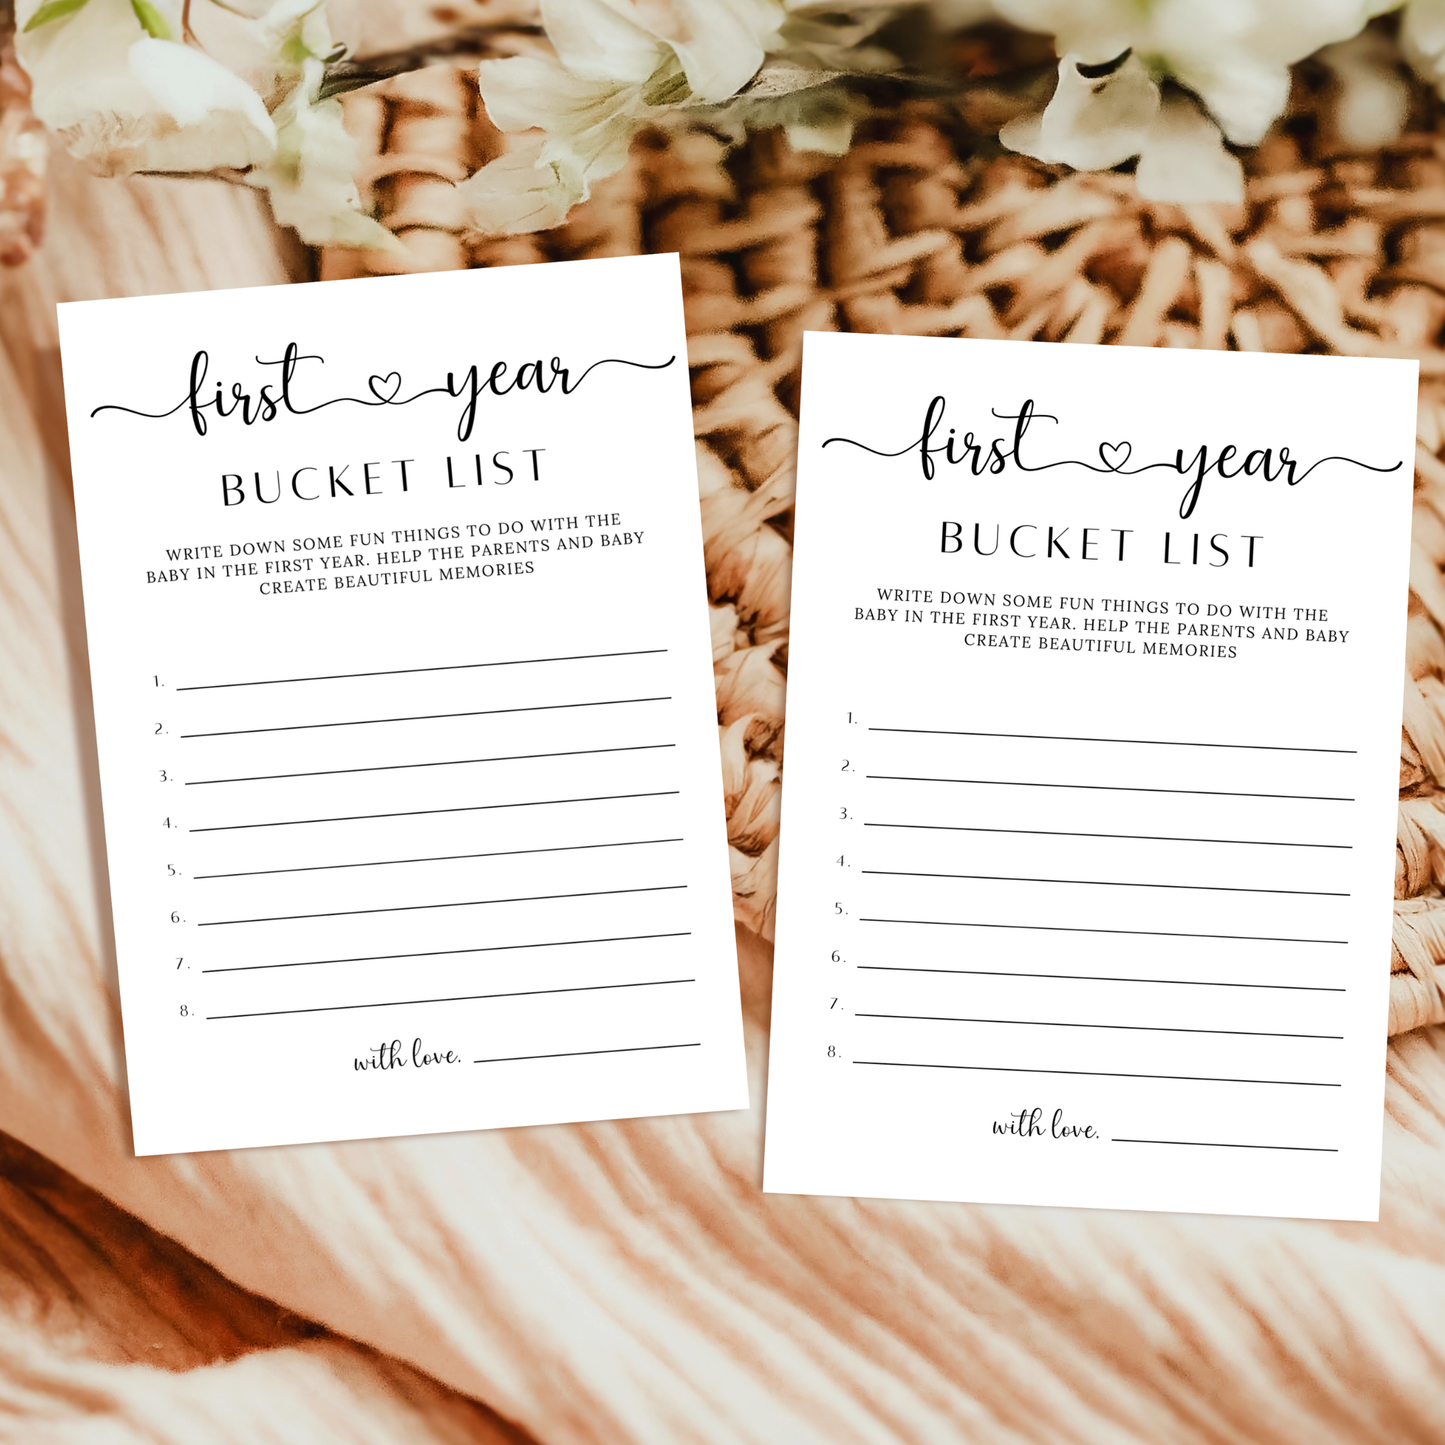 first year
BUCKET LIST
WRITE DOWN SOME FUN THINGS TO DO WITH THE
BABY IN THE FIRST YEAR. HELP THE PARENTS AND BABY
CREATE BEAUTIFUL MEMORIES
1.
2.
3.
4.
5.
6.
7.
8.
with love,
first year
BUCKET LIST
WRITE DOWN SOME FUN THINGS TO DO WITH THE
BABY IN THE FIRST YEAR. HELP THE PARENTS AND BABY
CREATE BEAUTIFUL MEMORIES
1.
2.
3.
4.
5.
6.
7.
8.
with love,